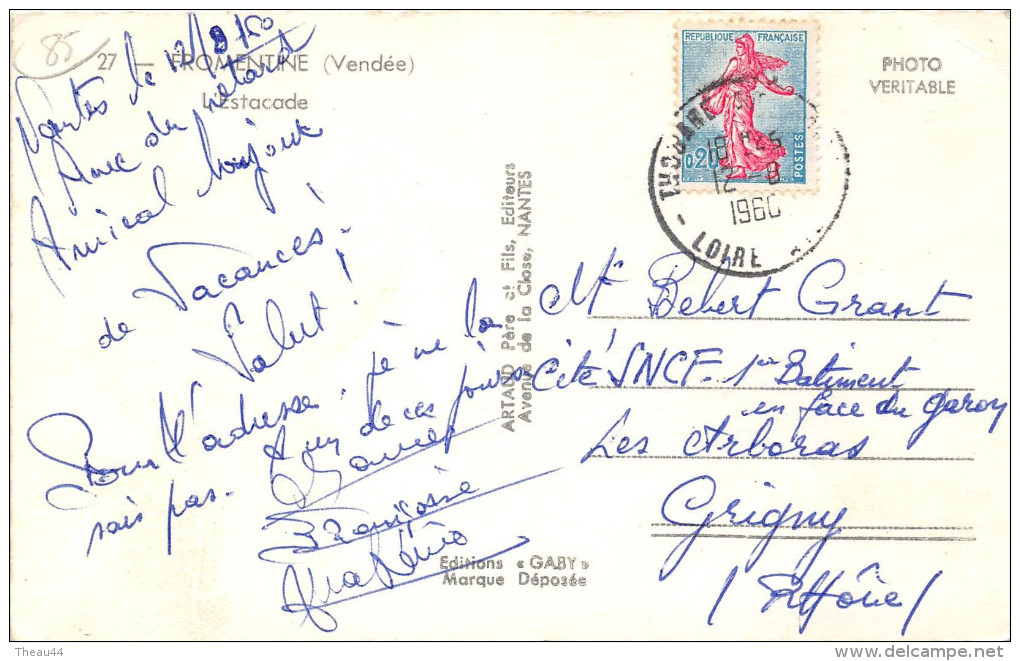 85
27 — FROMENTINE (Vendée)
L'Estacade
Nantes le 12/8/60
Avec du retard
Amical bonjour
de Vacances.
Salut !
Pour l'adresse, je ne la
sais pas. A un de ces jours
Françoise
ARTAUD Père et Fils, Editeurs
Avenue de la Close, NANTES
Editions « GABY »
Marque Déposée
PHOTO
VERITABLE
REPUBLIQUE FRANÇAISE
0,20
POSTES
THOUARE
18
12 - 8
1960
LOIRE
Mr Bebert Grant
Cité SNCF. 1er Batiment
en face du garon
Les Arboras
Grigny
(Rhône)
Theau44
delcampe.net